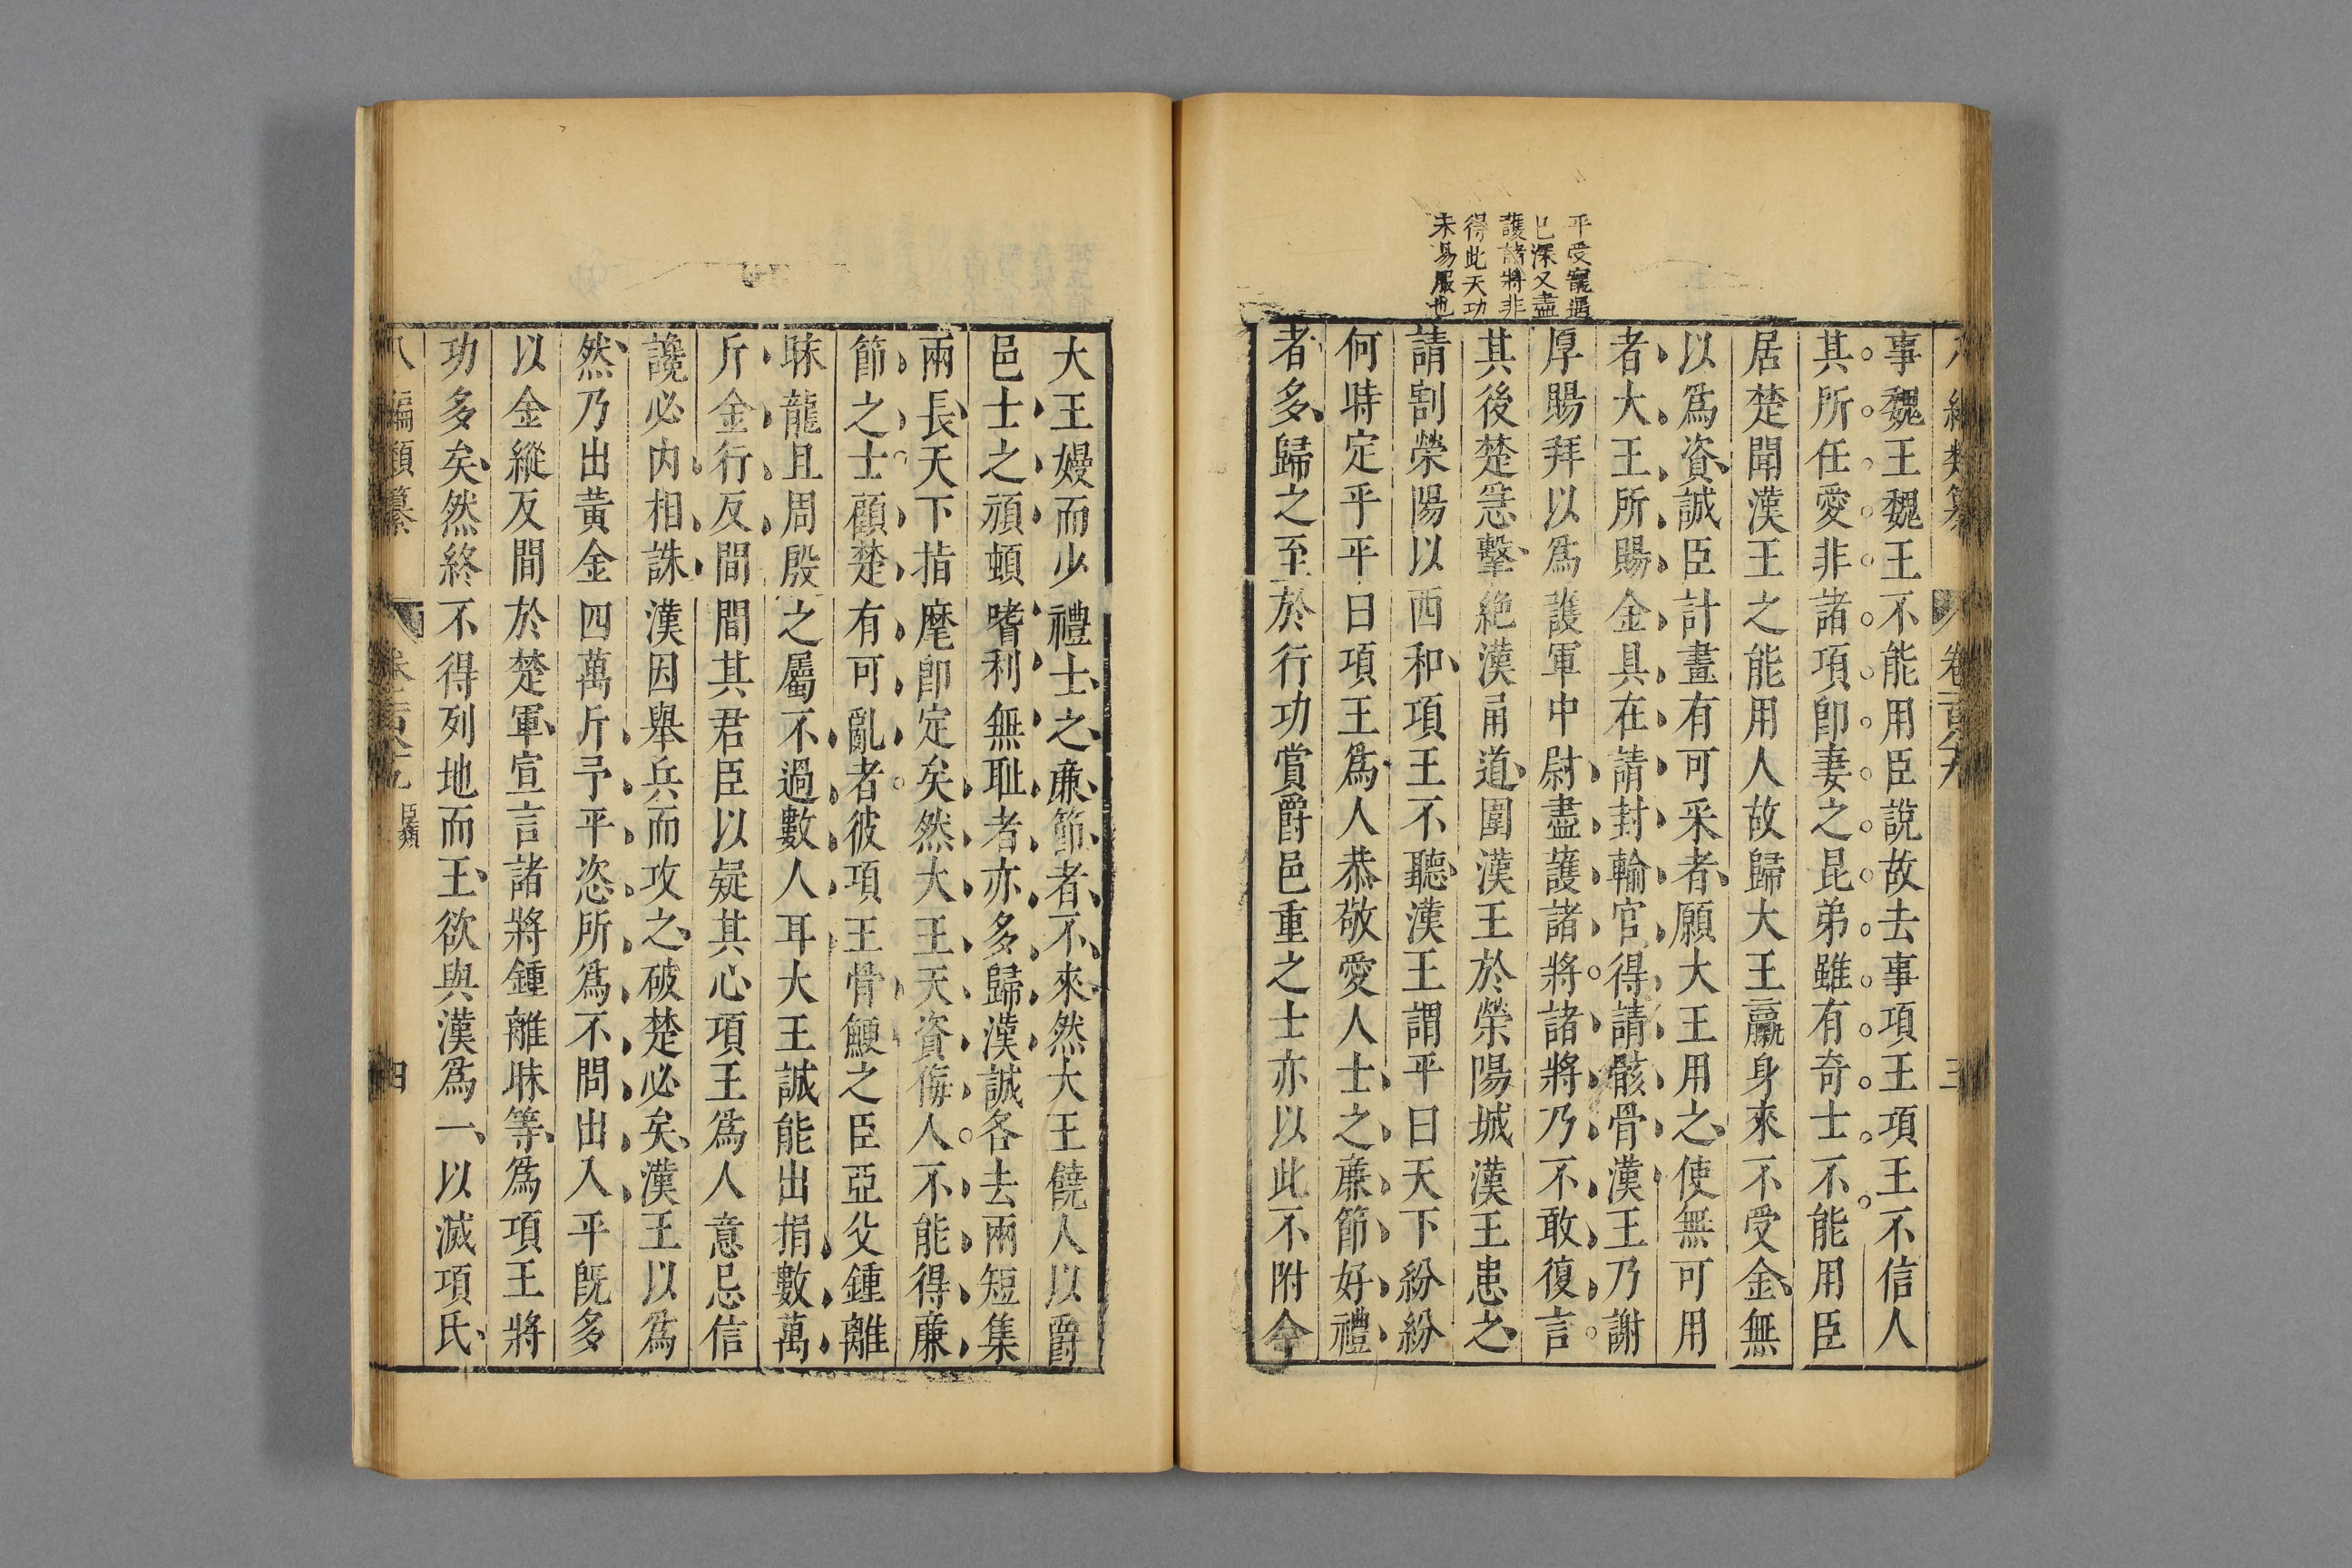 平受寵遇
已深又盡
護諸將非
得此天功
未易服也
事魏王魏王不能用臣說故去事項王項王不信人
其所任愛非諸項卽妻之昆弟雖有奇士不能用臣
居楚聞漢王之能用人故歸大王臝身來不受金無
以爲資誠臣計畫有可采者願大王用之使無可用
者大王所賜金具在請封輸官得請骸骨漢王乃謝
厚賜拜以爲護軍中尉盡護諸將諸將乃不敢復言
其後楚急擊絕漢甬道圍漢王於滎陽城漢王患之
請割滎陽以西和項王不聽漢王謂平曰天下紛紛
何時定乎平曰項王爲人恭敬愛人士之廉節好禮
者多歸之至於行功賞爵邑重之士亦以此不附今
大王嫚而少禮士之廉節者不來然大王饒人以爵
邑士之頑頓嗜利無耻者亦多歸漢誠各去兩短集
兩長天下指麾卽定矣然大王天資侮人不能得廉
節之士顧楚有可亂者彼項王骨鯁之臣亞父鍾離
昧龍且周殷之屬不過數人耳大王誠能出捐數萬
斤金行反間間其君臣以疑其心項王爲人意忌信
讒必內相誅漢因舉兵而攻之破楚必矣漢王以爲
然乃出黃金四萬斤予平恣所爲不問出入平旣多
以金縱反間於楚軍宣言諸將鍾離昧等爲項王將
功多矣然終不得列地而王欲與漢爲一以滅項氏
八編類纂 臣類 四